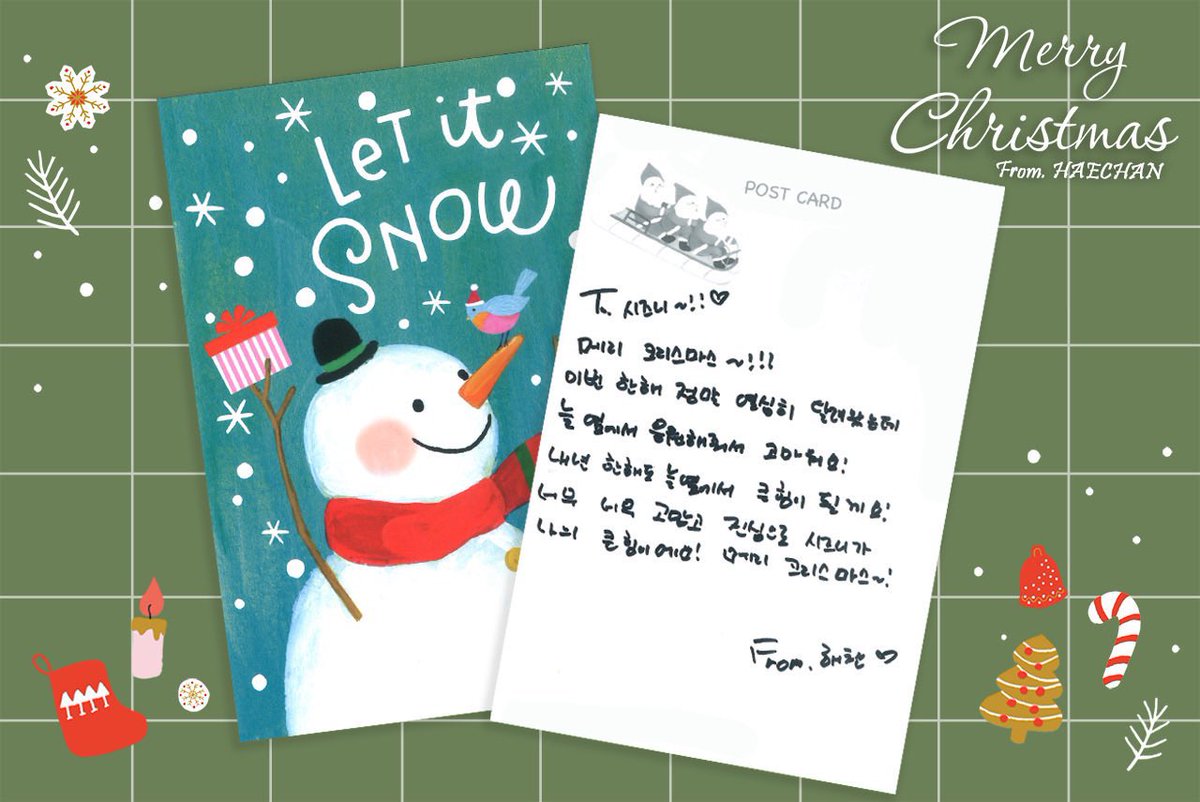 Merry
Christmas
From. HAECHAN
LET it
SNOW
POST CARD
To. 시즈니~!!♡
메리 크리스마스~!!!
이번 한해 정말 열심히 달려왔는데
늘 옆에서 응원해줘서 고마워요!
내년 한해도 늘 옆에서 큰 힘이 될게요!
너무 너무 고맙고 진심으로 시즈니가
나의 큰 힘이에요! 메리 크리스마스~!
From. 해찬♡